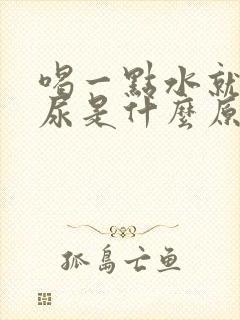 喝一點水就
尿是什麼原
孤島亡鱼